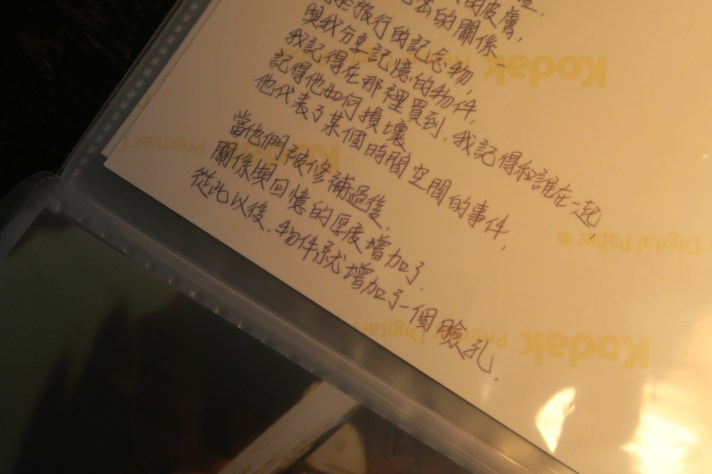 的皮膚,
去的關係
是旅行的記念物,
與我分享記憶的物件,
我記得在那裡買到,我記得和誰在一起
記得他如何損壞
他代表了某個時間空間的事件,
當他們被修補過後,
關係與回憶的厚度增加了.
從此以後,物件就增加了一個臉孔.
Kodak
Kodak Premier Digital
Digital Paper
Premier